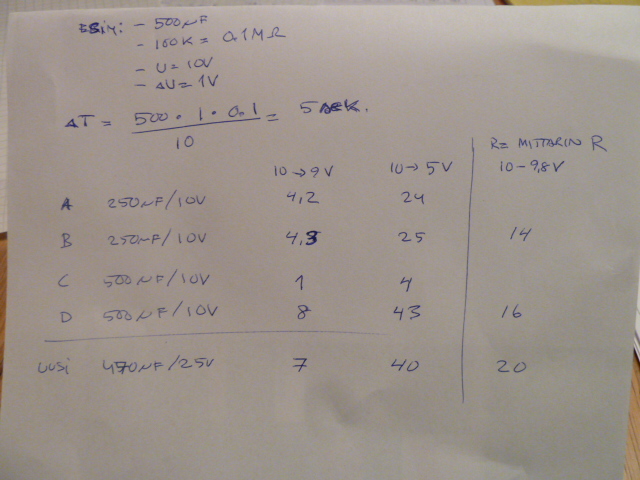 ESIM: - 500µF
- 100K = 0.1MΩ
- U = 10V
- ΔU = 1V
ΔT = 500 · 1 · 0.1 / 10 = 5 SEK.
R = MITTARIN R
10→9V 10→5V 10-9,8V
A 250µF/10V 4,2 24
B 250µF/10V 4,3 25 14
C 500µF/10V 1 4
D 500µF/10V 8 43 16
UUSI 470µF/25V 7 40 20